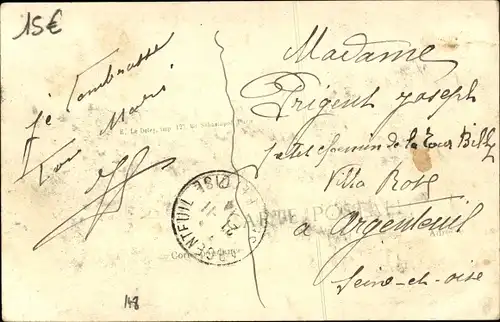 15€
je t'embrasse
Ton Mari
Madame
Prigent Joseph
petit chemin de la Tour Billy
Villa Rose
a Argenteuil
Seine-et-oise
E. Le Deley, imp. 127, Bd Sébastopol, Paris
ARGENTEUIL
CARTE POSTALE
Correspondance
Adresse
148